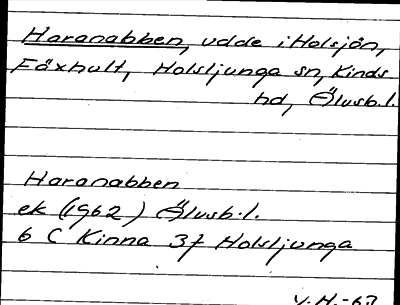 Haranabben, udde i Holsjön,
Fäxhult, Holsljunga sn, Kinds
hd, Älvsb.l.
Haranabben
ek (1962) Älvsb.l.
6 C Kinna 37 Holsljunga
V.H.-67